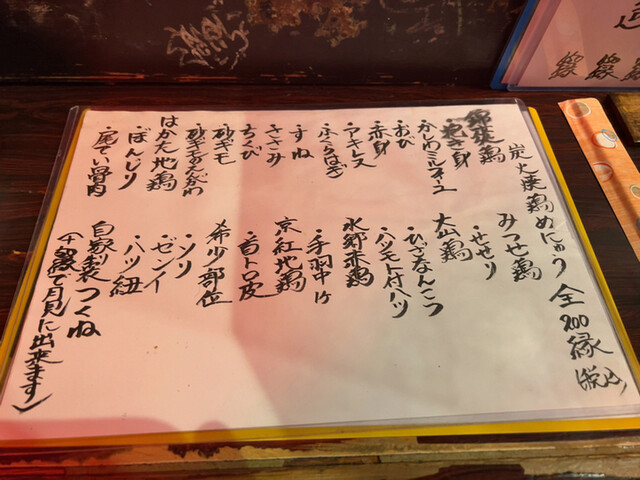 炭火焼鶏めにゅう 全200縁(税込)
・抱き身
・かしわミルネーユ
・おび
・赤身
・アキレス
・ふくらはぎ
・すね
・ささみ
・ちくび
・砂ギモ
・砂ギモあんがわ
はかた地鶏
・ぼんじり
・尾てい骨肉
みつせ鶏
・せせり
大山鶏
・ひざなんこつ
・ハツモト付ハツ
水郷赤鶏
・手羽中
京紅地鶏
・首トロ皮
希少部位
・ソリ
・ゼンイ
・ハツ紐
自家製つくね
月見に出来ます)